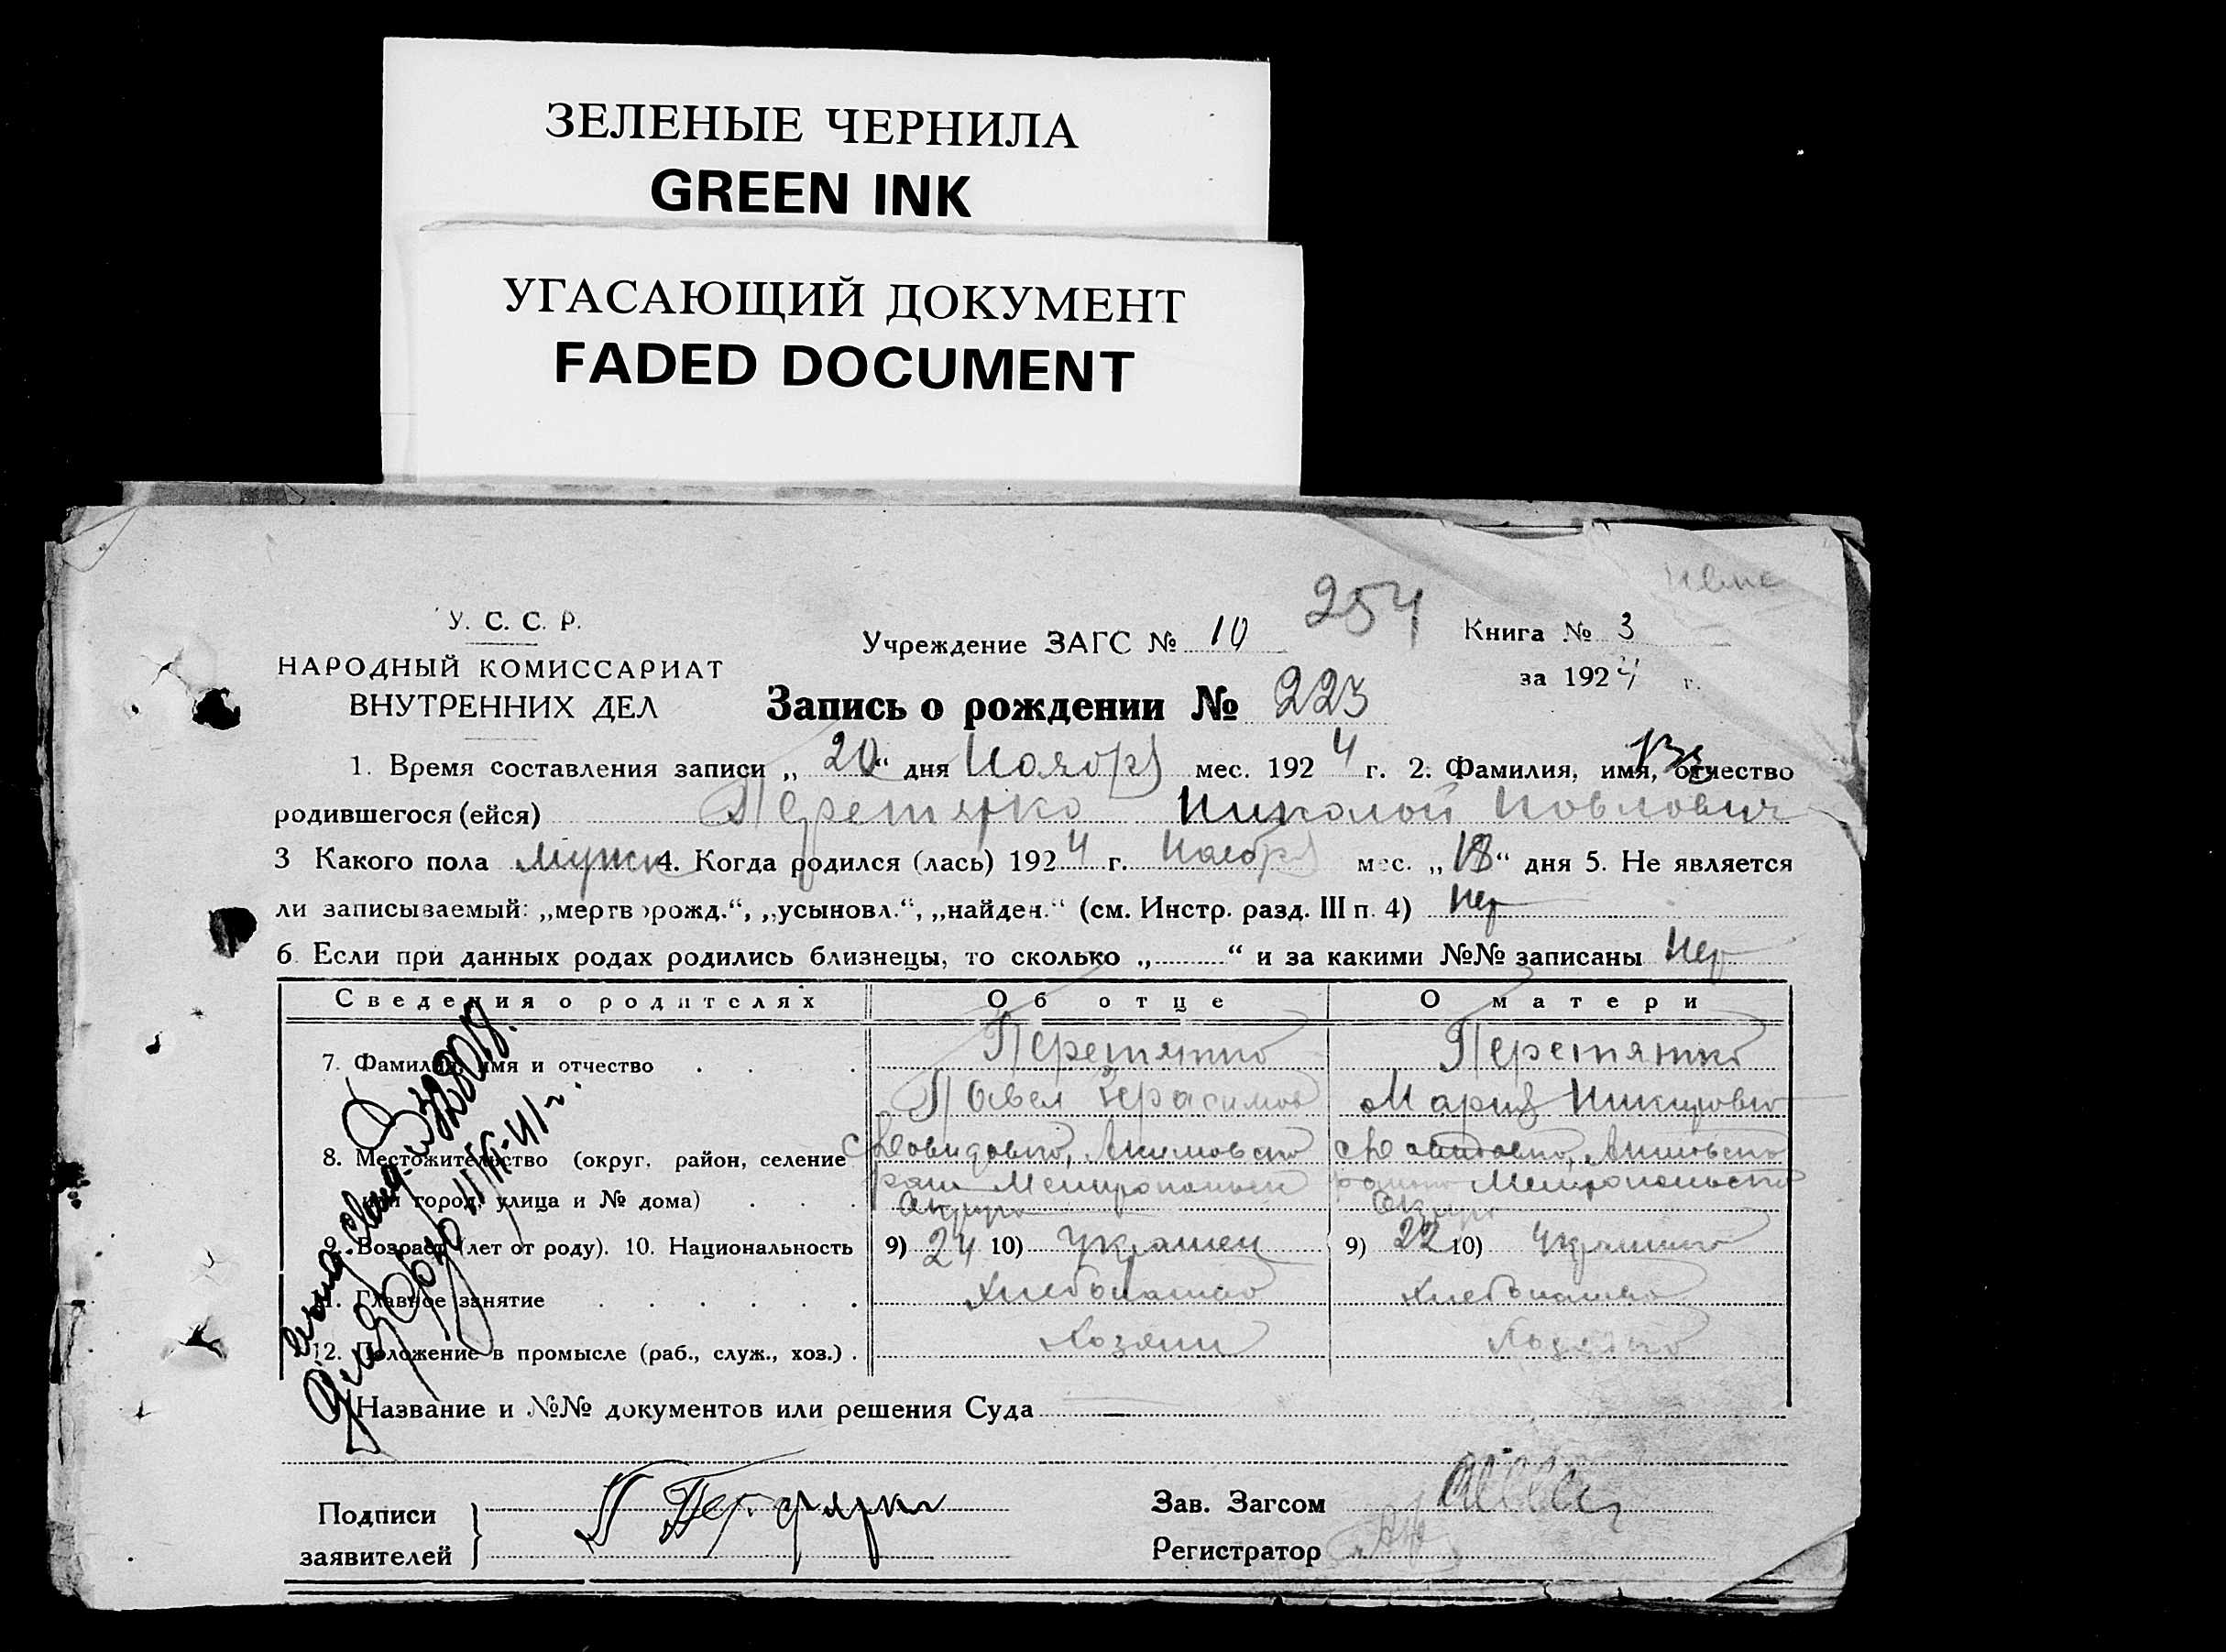 ЗЕЛЕНЫЕ ЧЕРНИЛА
GREEN INK
УГАСАЮЩИЙ ДОКУМЕНТ
FADED DOCUMENT
254
У. С. С. Р.
Учреждение ЗАГС № 10
Книга № 3
НАРОДНЫЙ КОМИССАРИАТ
за 1924 г.
ВНУТРЕННИХ ДЕЛ
Запись о рождении № 223
1. Время составления записи „ 20 “ дня Ноября мес. 1924 г. 2. Фамилия, имя, отчество
родившегося (ейся) Перетятко Николой Повлович
3 Какого пола мужс 4. Когда родился (лась) 1924 г. Ноября мес. „18“ дня 5. Не является
ли записываемый: „мертворожд.“, „усыновл.“, „найден.“ (см. Инстр. разд. III п. 4) Нет
6. Если при данных родах родились близнецы, то сколько „ “ и за какими №№ записаны Нет
Сведения о родителях Об отце О матери
7. Фамилия, имя и отчество Перетятко Перетятко
Повел Герасимов Мария
8. Местожительство (округ, район, селение с Довидовко, Акимовско с Довидовко, Акимовско
или город, улица и № дома) район Мелитопольск район Мелитопольско
Округо Округо
9. Возраст (лет от роду). 10. Национальность 9) 24 10) Украинец 9) 22 10) Украинко
11. Главное занятие Хлебопашество Хлебопашество
12. Положение в промысле (раб., служ., хоз.) Хозяин Хозяйко
Название и №№ документов или решения Суда
Подписи
заявителей
П Перетятко
Зав. Загсом
Регистратор